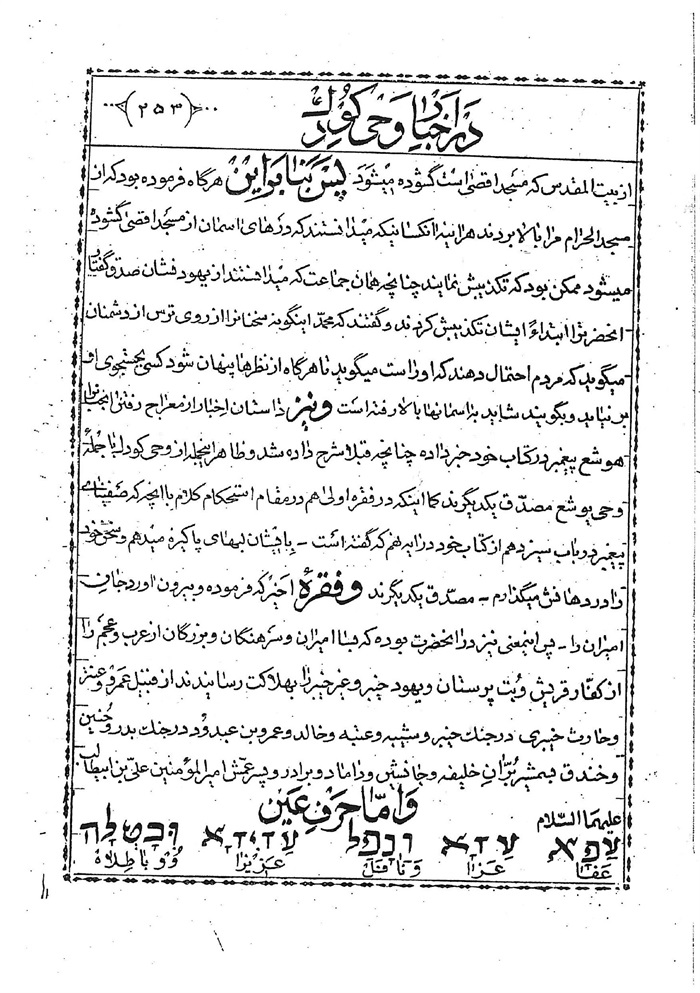 در اخبار وحی کودک
(۲۵۳)
از بیت المقدس که مسجد اقصی است گشوده میشود پس بنابراین هرگاه فرموده بود که از
مسجد الحرام مرا بالا بردند هراینه انکسانیکه میدانستند که درهای اسمان از مسجد اقصی گشوده
میشود ممکن بود که تکذیبش نمایند چنانچه همان جماعت که میدانستند از یهود نشان صدق و گفتار
انحضرترا ابتداءً ایشان تکذیبش کردند و گفتند که محمد اینگونه سخنانرا از روی ترس از دشمنان
میگوید که مردم احتمال دهند که او راست میگوید تا هرگاه از نظرها پنهان شود کسی بجستجوی او
بر نیاید و بگویند شاید براسمانها بالا رفته است و نیز داستان اخبار از معراج رفتن انجنابرا
هوشع پیغمبر در کتاب خود خبر داده چنانچه قبلا شرح داده شد و ظاهر اینجمله از وحی کودک با جملهٔ
وحی یوشع مصدّق یکدیگرند کما اینکه در فقره اولی هم در مقام استحکام کلام با انچه که صفینای
پیغمبر در باب سیزدهم از کتاب خود در ایه نهم که گفته است - بایشان لبهای پاکیزه میدهم و سخن خود
را در دهانش میگذارم - مصدّق یکدیگرند و فقرهٔ اخیر که فرموده و بیرون اورد جان
امیران را - پس اینمعنی نیز در انحضرت بوده که بسا امیران و سرهنگان و بزرگان از عرب و عجم را
از کفار قریش و بت پرستان و یهود خیبر و غیر خیبر را بهلاکت رسانیدند از قبیل عمرو و عنتر
و حارث خیبری در جنک خیبر و شیبه و عتبه و خالد و عمرو بن عبدود در جنك بدر و حنین
و خندق بشمشیر برّان خلیفه و جانشین و داماد و برادر و پسر عمّش امیرالمؤمنین علی بن ابیطالب
علیهما السّلام وَ اَمّا حَرفِ عَین
עפא עזא ונפל עזיזא ובטלה
عَفا عَزا وَنافَل عَزیزا وُوباطِلاه